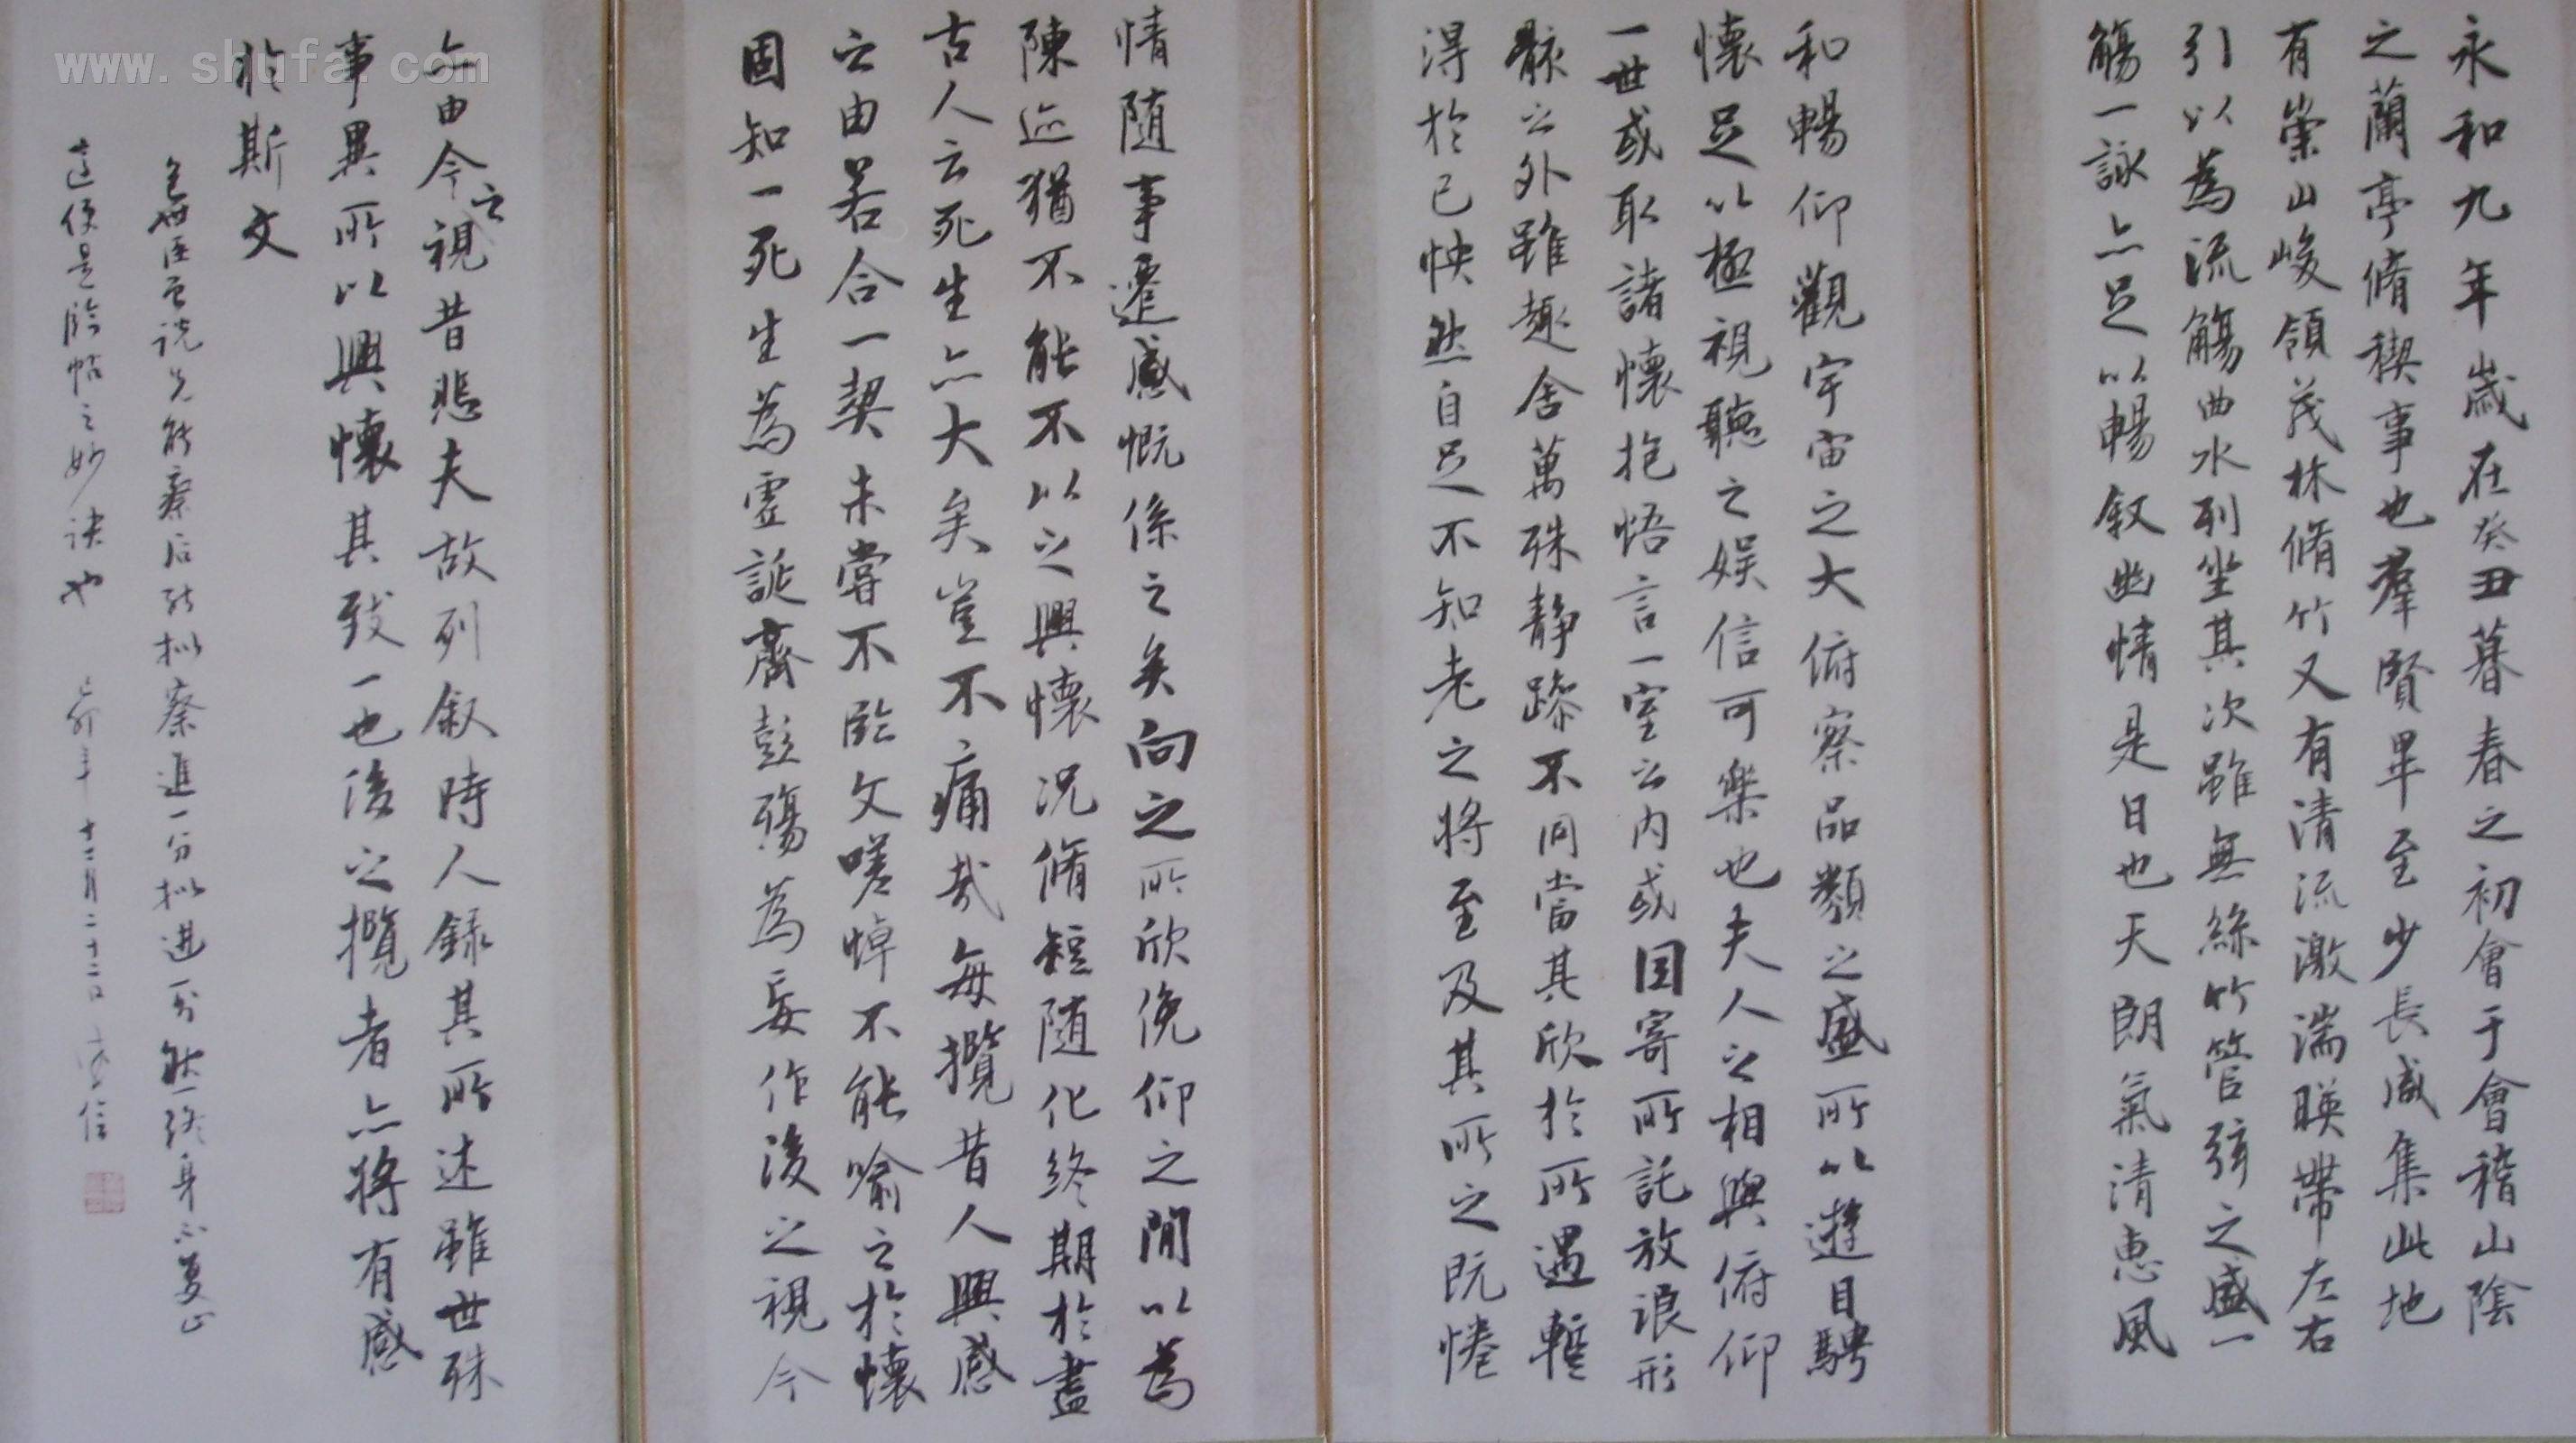 永和九年歲在癸丑暮春之初會于會稽山陰
之蘭亭脩稧事也羣賢畢至少長咸集此地
有崇山峻領茂林脩竹又有清流激湍暎帶左右
引以為流觴曲水列坐其次雖無絲竹管弦之盛一
觴一詠亦足以暢叙幽情是日也天朗氣清惠風
和暢仰觀宇宙之大俯察品類之盛所以遊目騁
懷足以極視聽之娛信可樂也夫人之相與俯仰
一世或取諸懷抱悟言一室之內或因寄所託放浪形
骸之外雖趣舍萬殊静躁不同當其欣於所遇暫
得於己怏然自足不知老之將至及其所之既惓
情随事遷感慨係之矣向之所欣俛仰之間以為
陳迹猶不能不以之興懷況脩短随化終期於盡
古人云死生亦大矣豈不痛哉每攬昔人興感
之由若合一契未嘗不臨文嗟悼不能喻之於懷
固知一死生為虛誕齊彭殤為妄作後之視今
亦由今之視昔悲夫故列叙時人録其所述雖世殊
事異所以興懷其致一也後之攬者亦將有感
於斯文
包世臣曾说先能察后能拟察進一分拟进一分
這便是臨帖之妙诀也 己卯年十二月二十二日
www.shufa.com